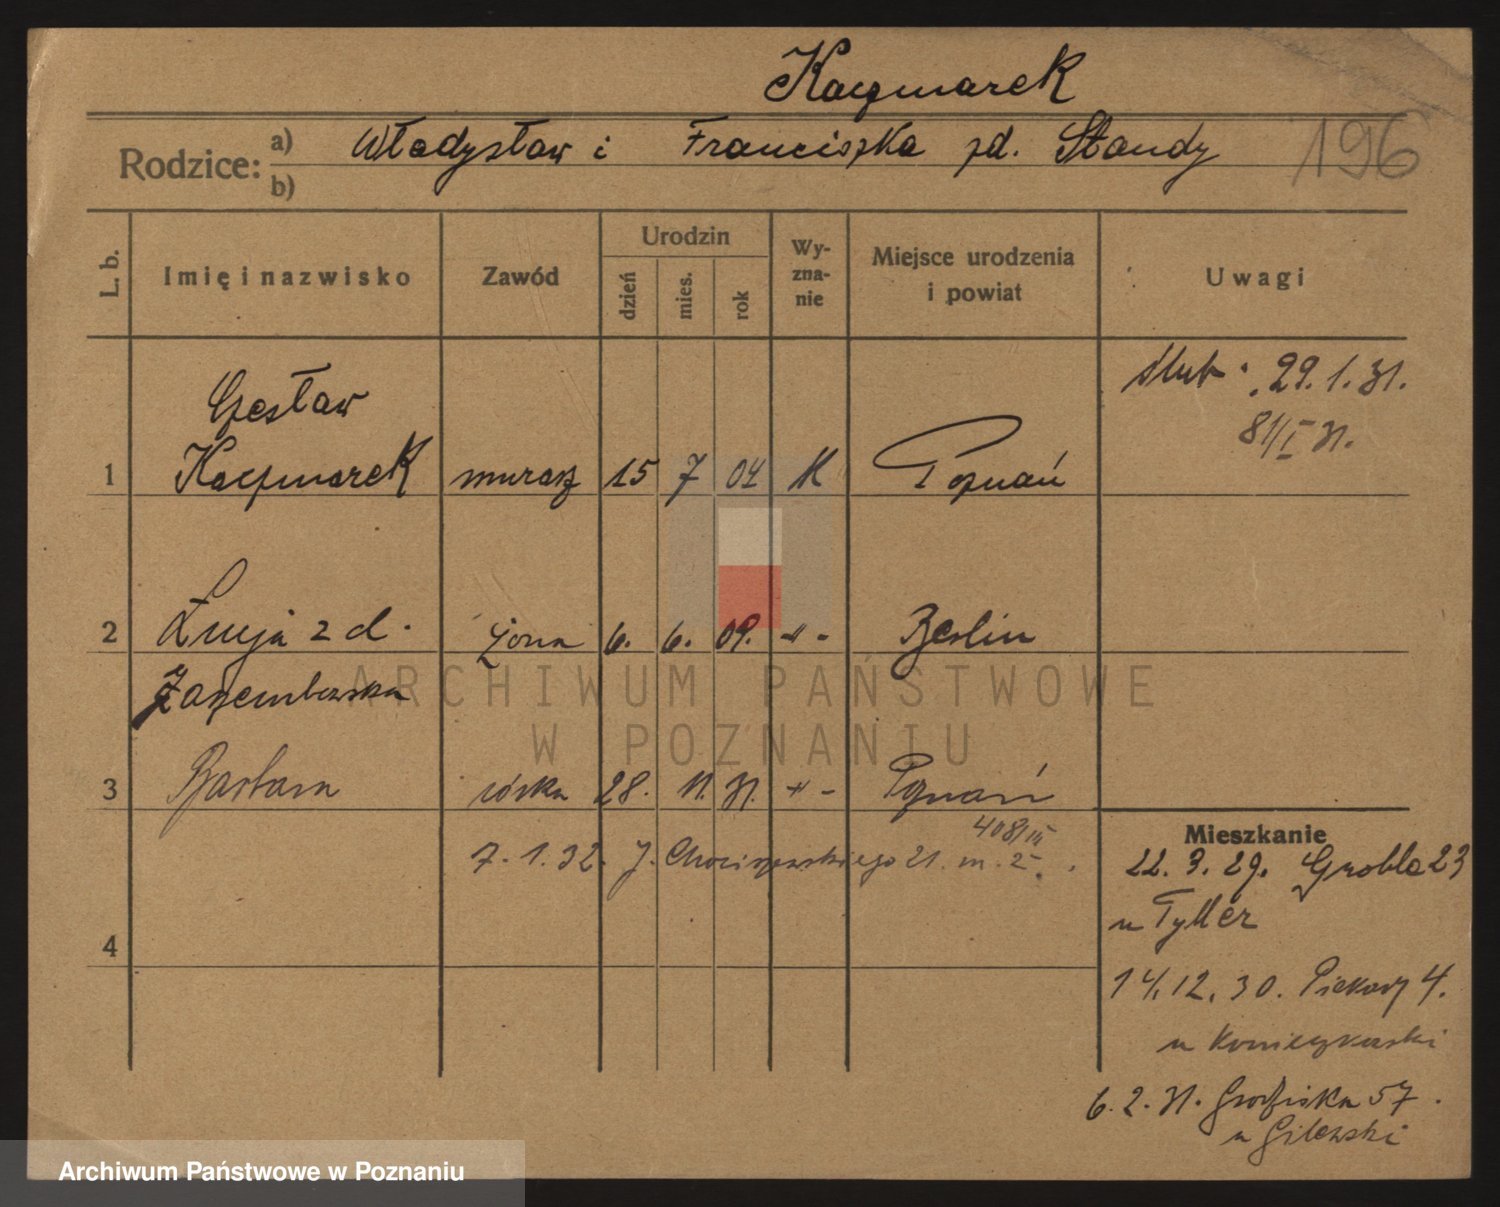 Kaczmarek
196
Rodzice: a) Władysław i Franciszka zd. Standy
b)
L. b. Imię i nazwisko Zawód Urodzin dzień mies. rok Wy-zna-nie Miejsce urodzenia i powiat Uwagi
ślub 29.1.31.
81/I 31.
Czesław
1 Kaczmarek murarz 15 7 04 K Poznań
2 Łucja z d. żona 6. 6. 09. -"- Berlin
3 Barbara córka 28. 11. 31. -"- Poznań
408/III
7.1.32. J. Chociszewskiego 21. m. 2.
4
Mieszkanie
22.3.29. Grobla 23
u Tyller
14.12.30. Piekary 4.
u
6.2.31. 57.
u Gilewski
ARCHIWUM PAŃSTWOWE
W POZNANIU
Archiwum Państwowe w Poznaniu